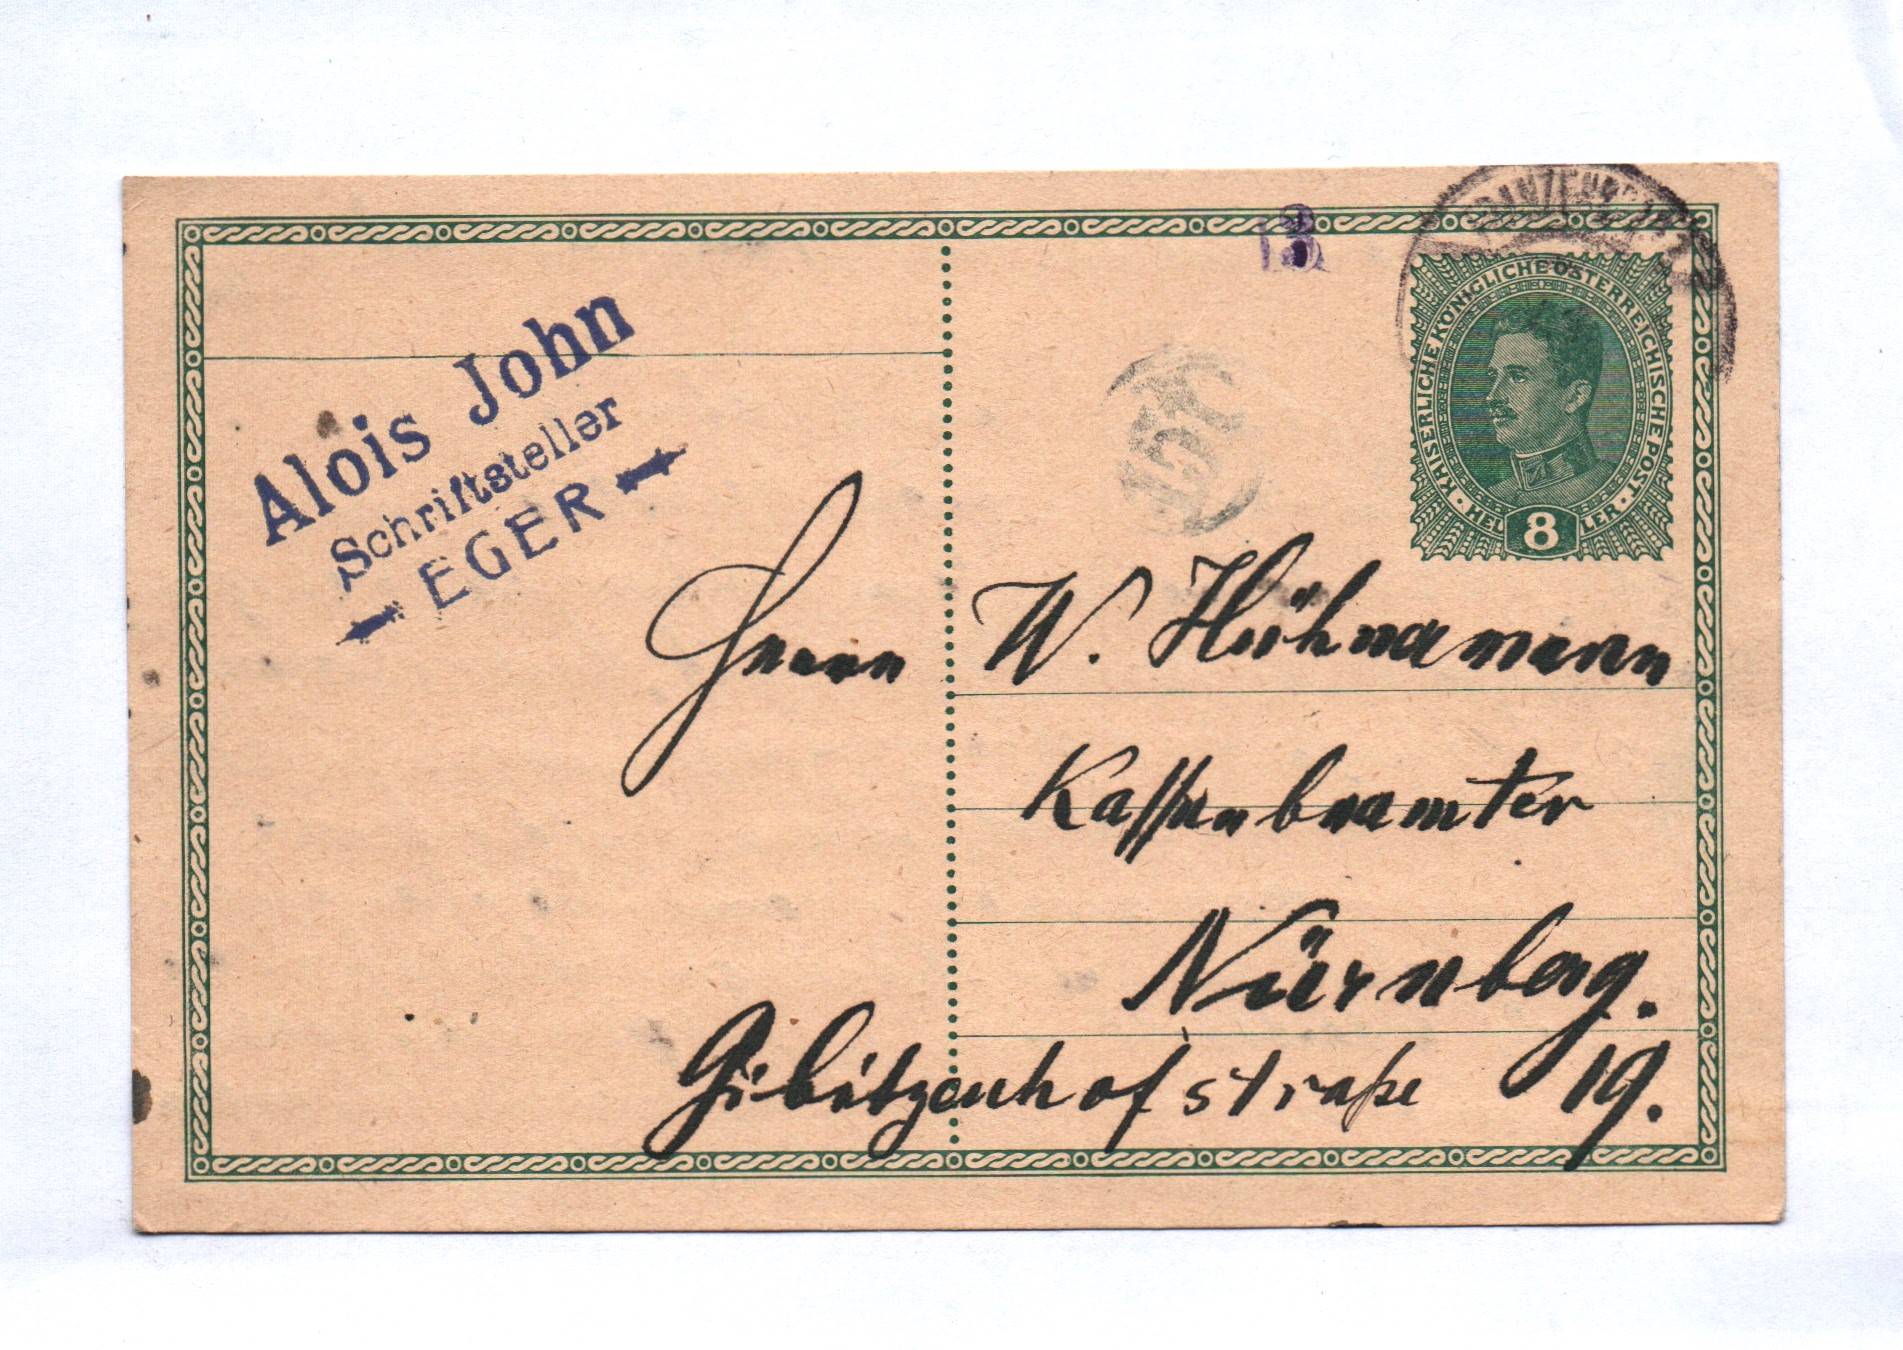 Alois John
Schriftsteller
EGER
13
KAISERLICHE KÖNIGLICHE ÖSTERREICHISCHE POST
8 HELLER
Herrn W. Hühnamann
Kassenbeamter
Nürnberg.
Gibitzenhofstraße 19.